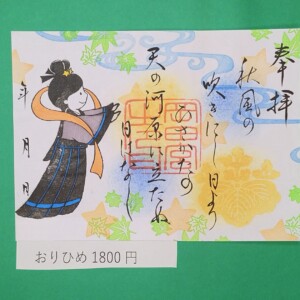 奉拝
秋風の
吹きにし日より
天の河原に立たぬ
日はなし
年 月 日
おりひめ 1800 円